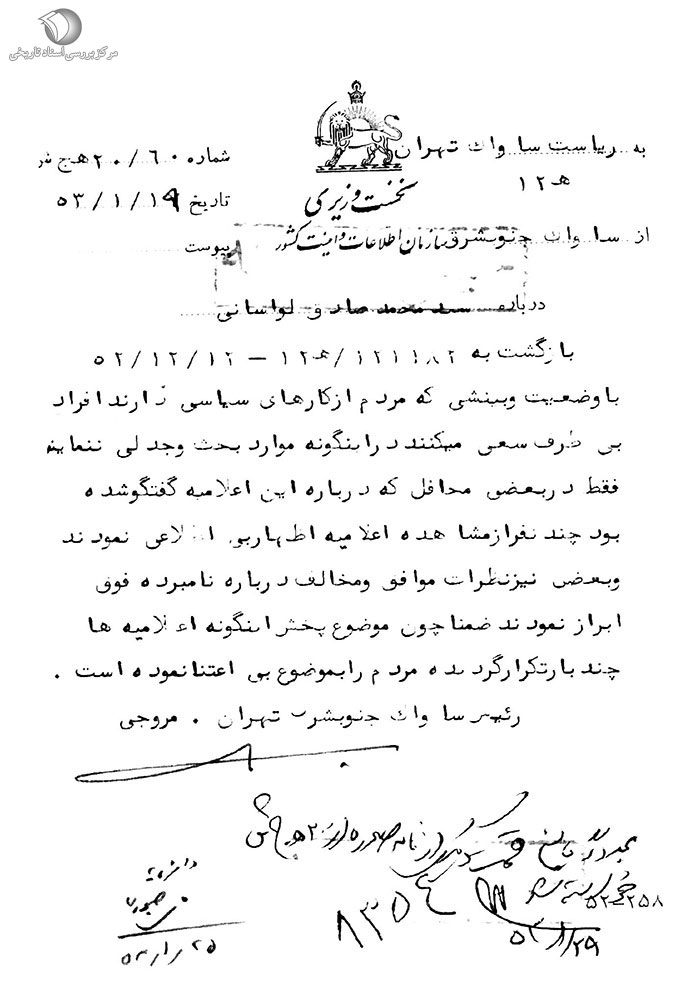 مرکز بررسی اسناد تاریخی
به ریاست ساواک تهران
۱۲ ﻫ
شماره ۲۰/۶۰ هج ش
نخست وزیری
تاریخ ۵۳/۱/۱۹
از ساواک جنوبشرق
سازمان اطلاعات و امنیت کشور
پیوست
درباره سید محمد صادق لواسانی
بازگشت به ۱۲۱۱۸۲/ﻫ۱۲ – ۵۲/۱۲/۱۲
با وضعیت وبینشی که مردم ازکارهای سیاسی دارند افراد
بی طرف سعی میکنند دراینگونه موارد بحث وجدلی ننماین
فقط دربعضی محافل که درباره این اعلامیه گفتگوشده
بود چند نفرازمشاهده اعلامیه اظهاربی اطلاعی نمودند
وبعضی نیزنظرات موافق ومخالف درباره نامبرده فوق
ابراز نمودند ضمنا چون موضوع پخش اینگونه اعلامیه ها
چند بارتکرارگردیده مردم رابموضوع بی اعتنانموده است .
رئیس ساواک جنوبشرق تهران . مروجی
۸۳۵
۲۵۸